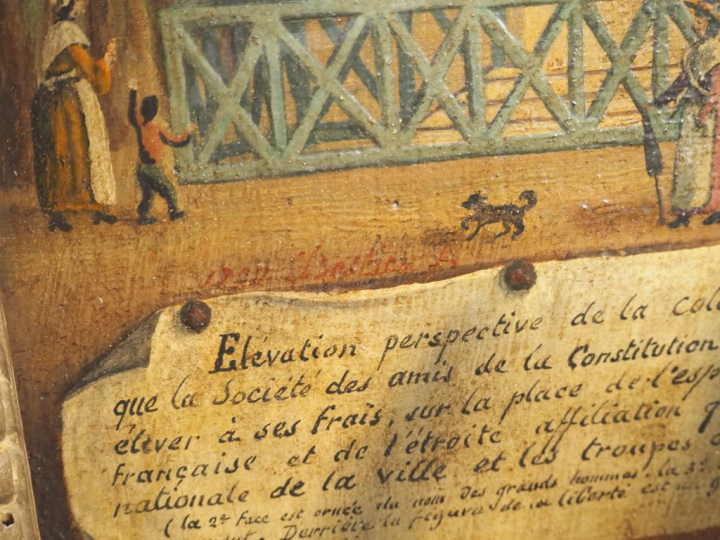 Elévation perspective de la col
que la Société des amis de la Constitution
élever à ses frais, sur la place de l'esp
française et de l'étroite affiliation q
nationale de la ville et les troupes
(la 2e face est ornée du nom des grands hommes. la 3e
Derrière la figure de la liberté est un